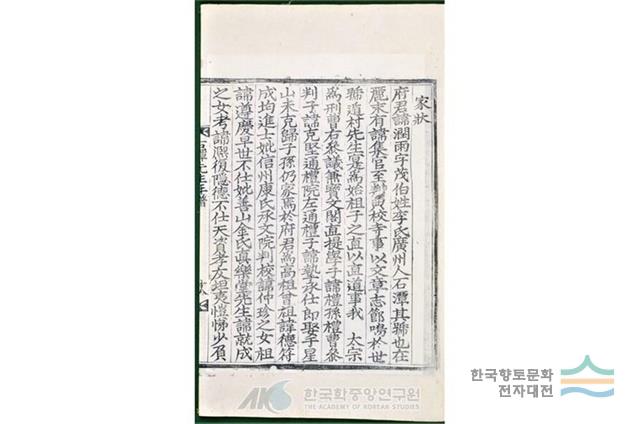 家狀
府君諱潤雨字茂伯姓李氏廣州人石潭其號也在
麗末有諱集官至判典校寺事以文章志節鳴於世
號遁村先生寔爲始祖子之直以直道事我 太宗
爲刑曹右參議兼寶文閣直提學子諱禮孫禮曹參
判子諱克堅通禮院左通禮子諱摯承仕郞娶于星
山未克歸子孫仍家焉於府君爲高祖曾祖諱德符
成均進士妣信州康氏承文院判校諱仲珍之女祖
諱遵慶早世不仕妣善山金氏眞樂堂先生諱就成
之女考諱熙復隱德不仕天資孝友坦夷愷悌少原
石潭先生年譜
한국향토문화
전자대전
AKS 한국학중앙연구원
THE ACADEMY OF KOREAN STUDIES